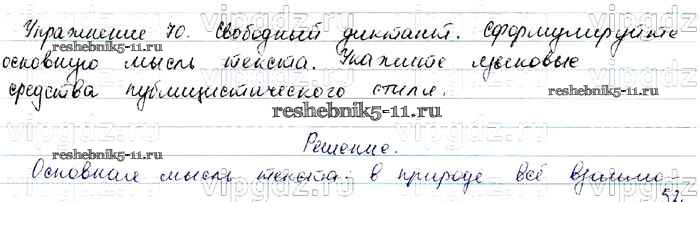 Упражнение 70. Свободный диктант. Сформулируйте
основную мысль текста. Укажите языковые
средства публицистического стиля.
reshebnik5-11.ru
reshebnik5-11.ru
reshebnik5-11.ru
Решение.
reshebnik5-11.ru
Основная мысль текста: в природе всё взаимо-
52.
vipgdz.ru